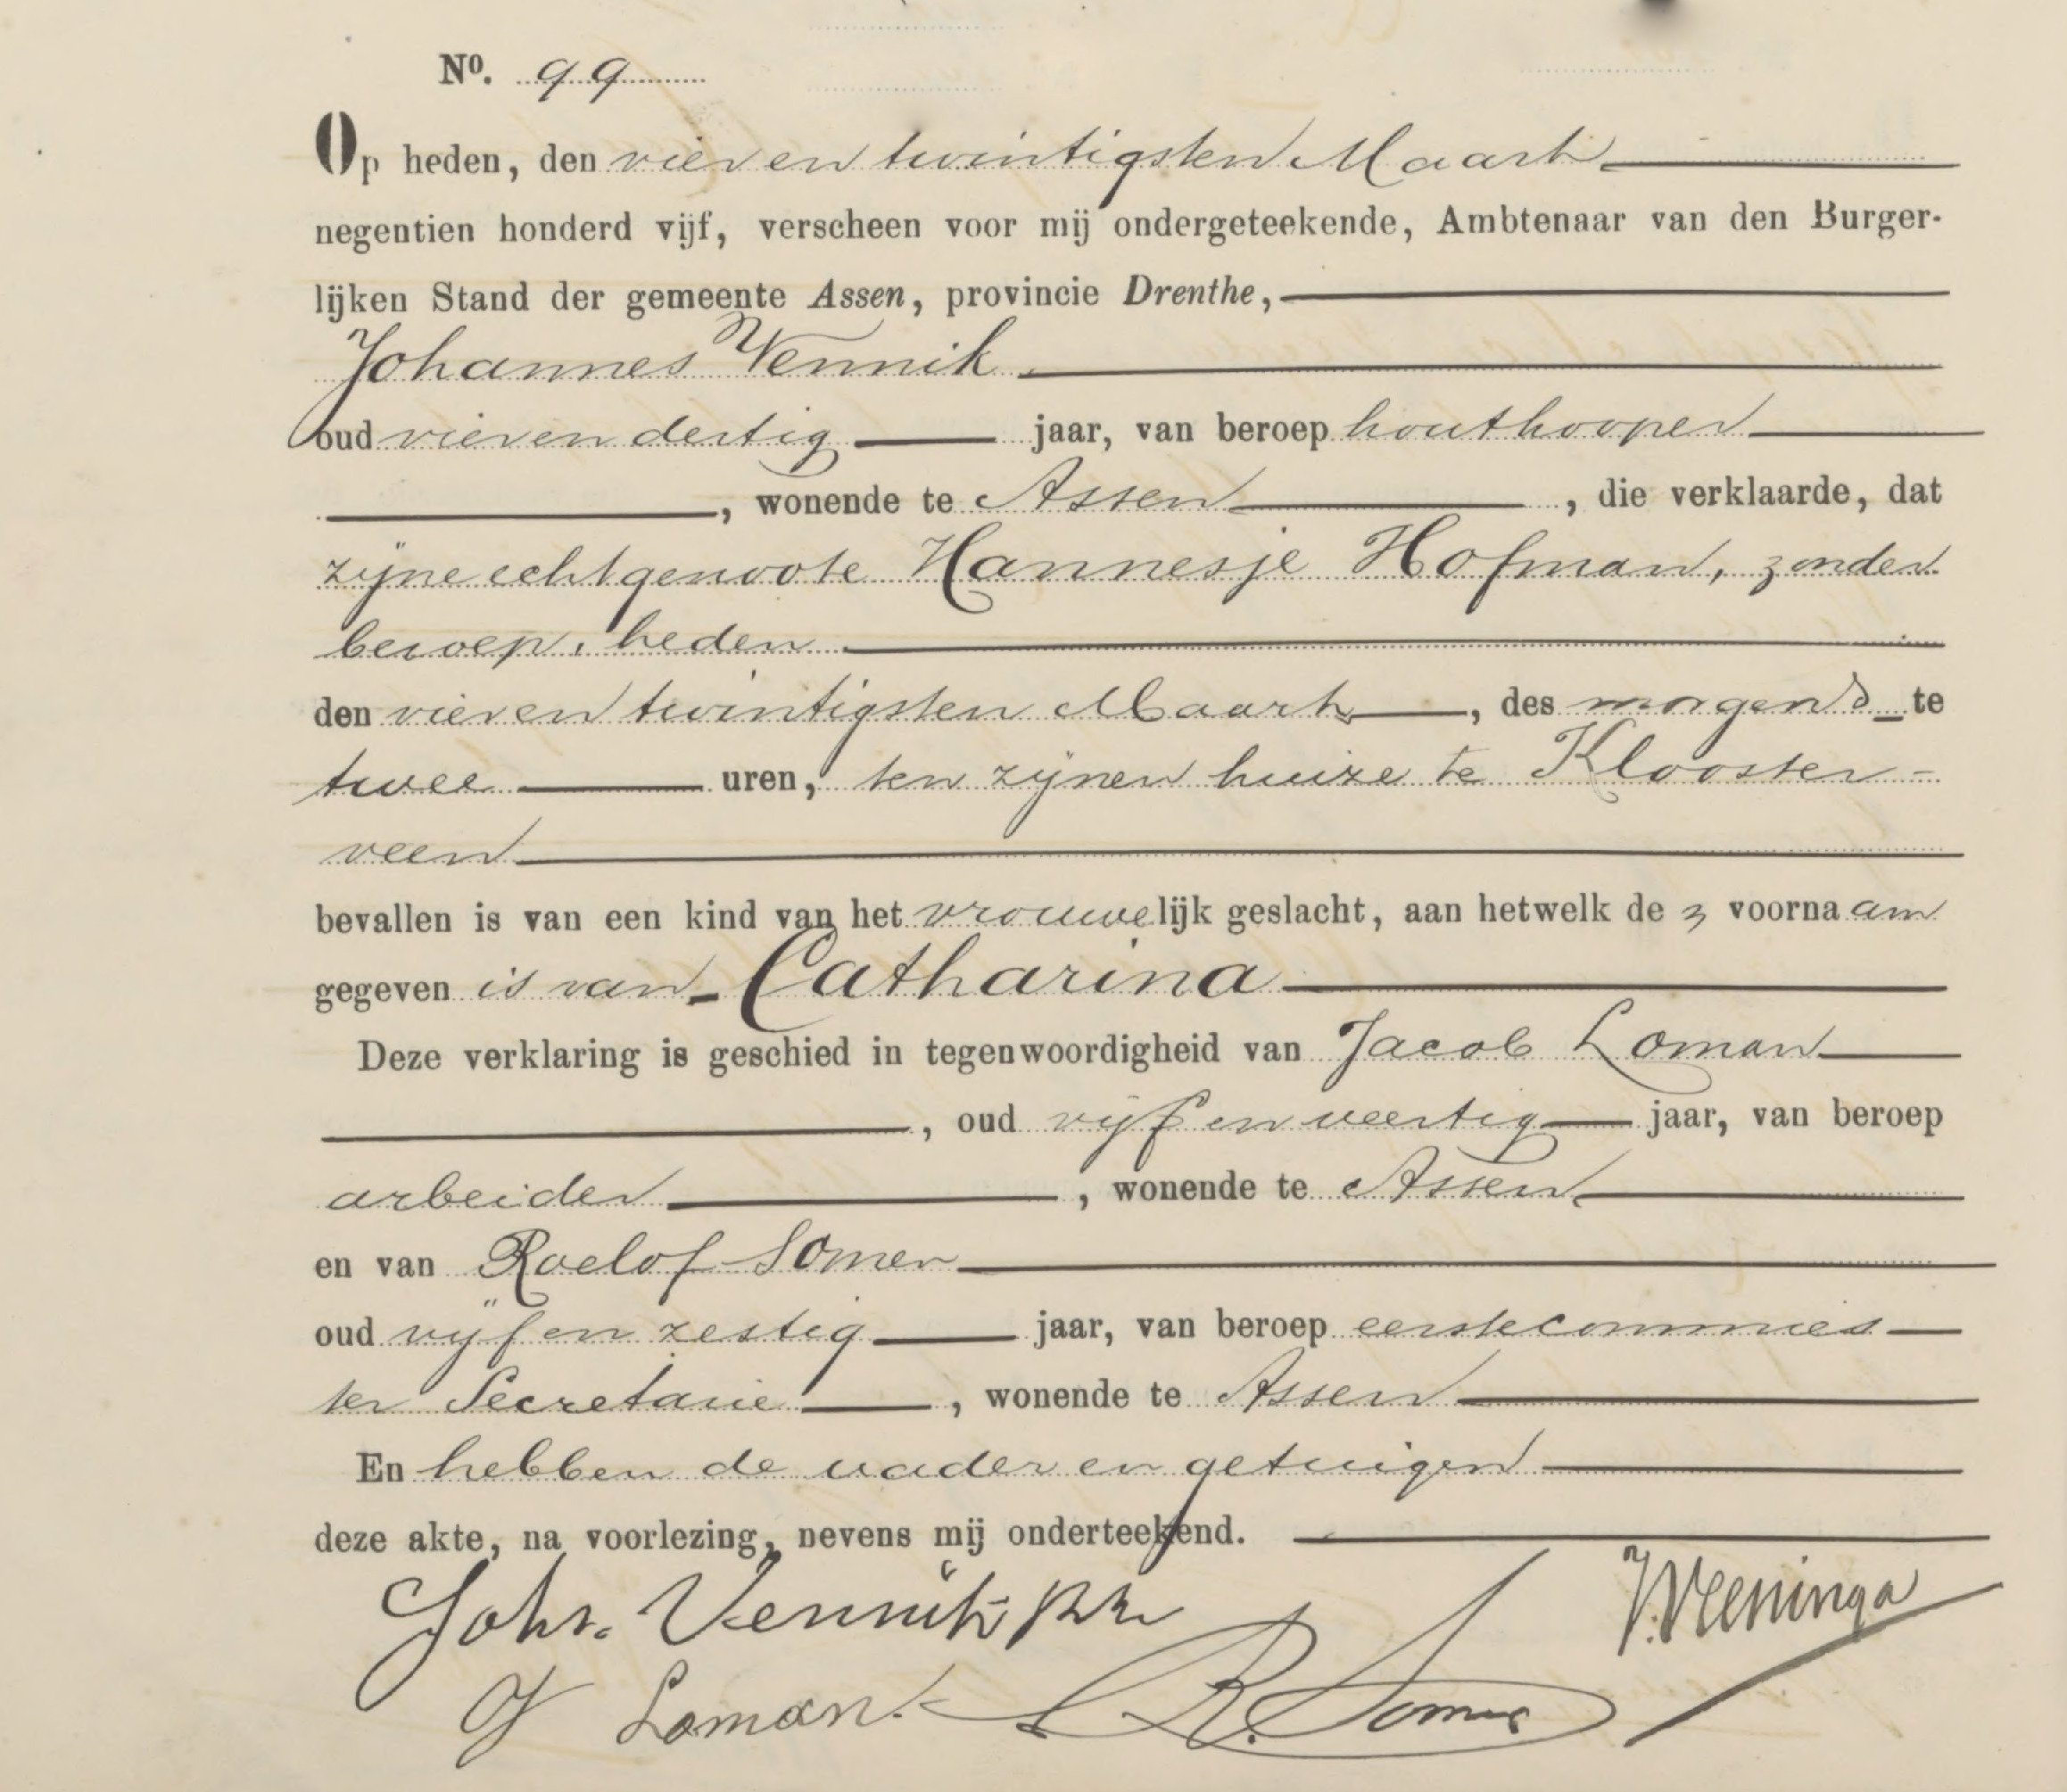 No. 99
Op heden, den vier en twintigsten Maart
negentien honderd vijf, verscheen voor mij ondergeteekende, Ambtenaar van den Burger-
lijken Stand der gemeente Assen, provincie Drenthe,
Johannes Vennik
oud vier en dertig jaar, van beroep houtkooper
, wonende te Assen, die verklaarde, dat
zijne echtgenoote Hannesje Hofman, zonder
beroep, heden
den vier en twintigsten Maart, des morgens te
twee uren, ten zijnen huize te Klooster-
veen
bevallen is van een kind van het vrouwelijk geslacht, aan hetwelk de voornaam
gegeven is van Catharina
Deze verklaring is geschied in tegenwoordigheid van Jacob Loman
, oud vijf en veertig jaar, van beroep
arbeider, wonende te Assen
en van Roelof Somer
oud vijf en zestig jaar, van beroep eerste commies
ter Secretarie, wonende te Assen
En hebben de vader en getuigen
deze akte, na voorlezing, nevens mij onderteekend.
Johs. Vennik
J Loman. R. Somer